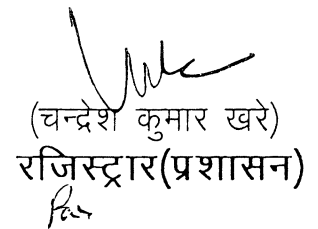 (चन्द्रेश कुमार खरे)
रजिस्ट्रार(प्रशासन)